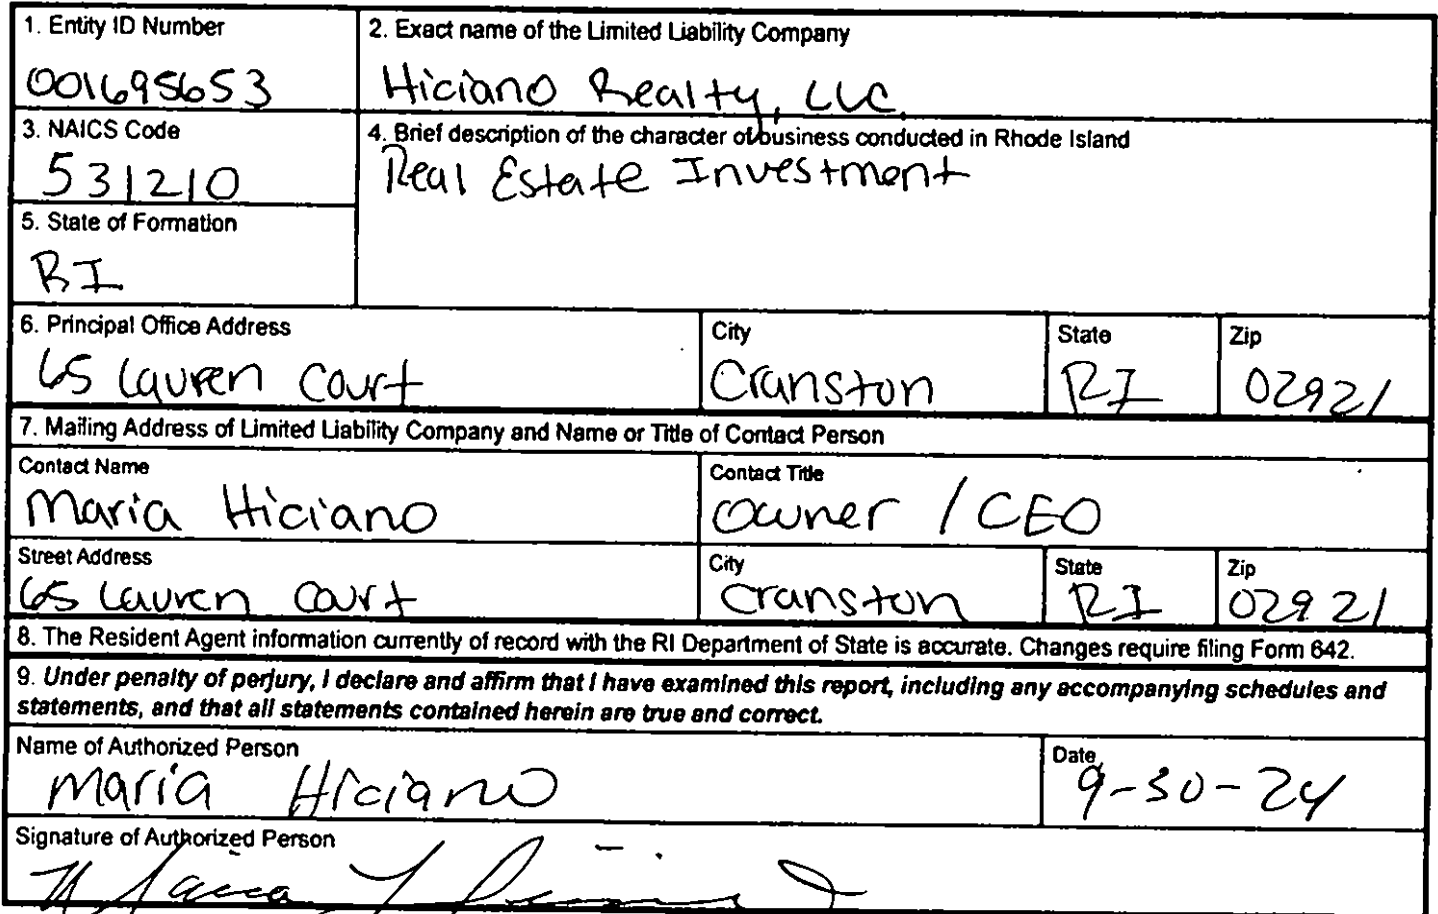 1. Entity ID Number
2. Exact name of the Limited Liability Company
001695653
Hiciano Realty, LLC
3. NAICS Code
4. Brief description of the character of business conducted in Rhode Island
531210
Real Estate Investment
5. State of Formation
RI
6. Principal Office Address City State Zip
65 Lauren Court Cranston RI 02921
7. Mailing Address of Limited Liability Company and Name or Title of Contact Person
Contact Name Contact Title
Maria Hiciano Owner / CEO
Street Address City State Zip
65 Lauren Court Cranston RI 02921
8. The Resident Agent information currently of record with the RI Department of State is accurate. Changes require filing Form 642.
9. Under penalty of perjury, I declare and affirm that I have examined this report, including any accompanying schedules and
statements, and that all statements contained herein are true and correct.
Name of Authorized Person Date
Maria Hiciano 9-30-24
Signature of Authorized Person
Maria